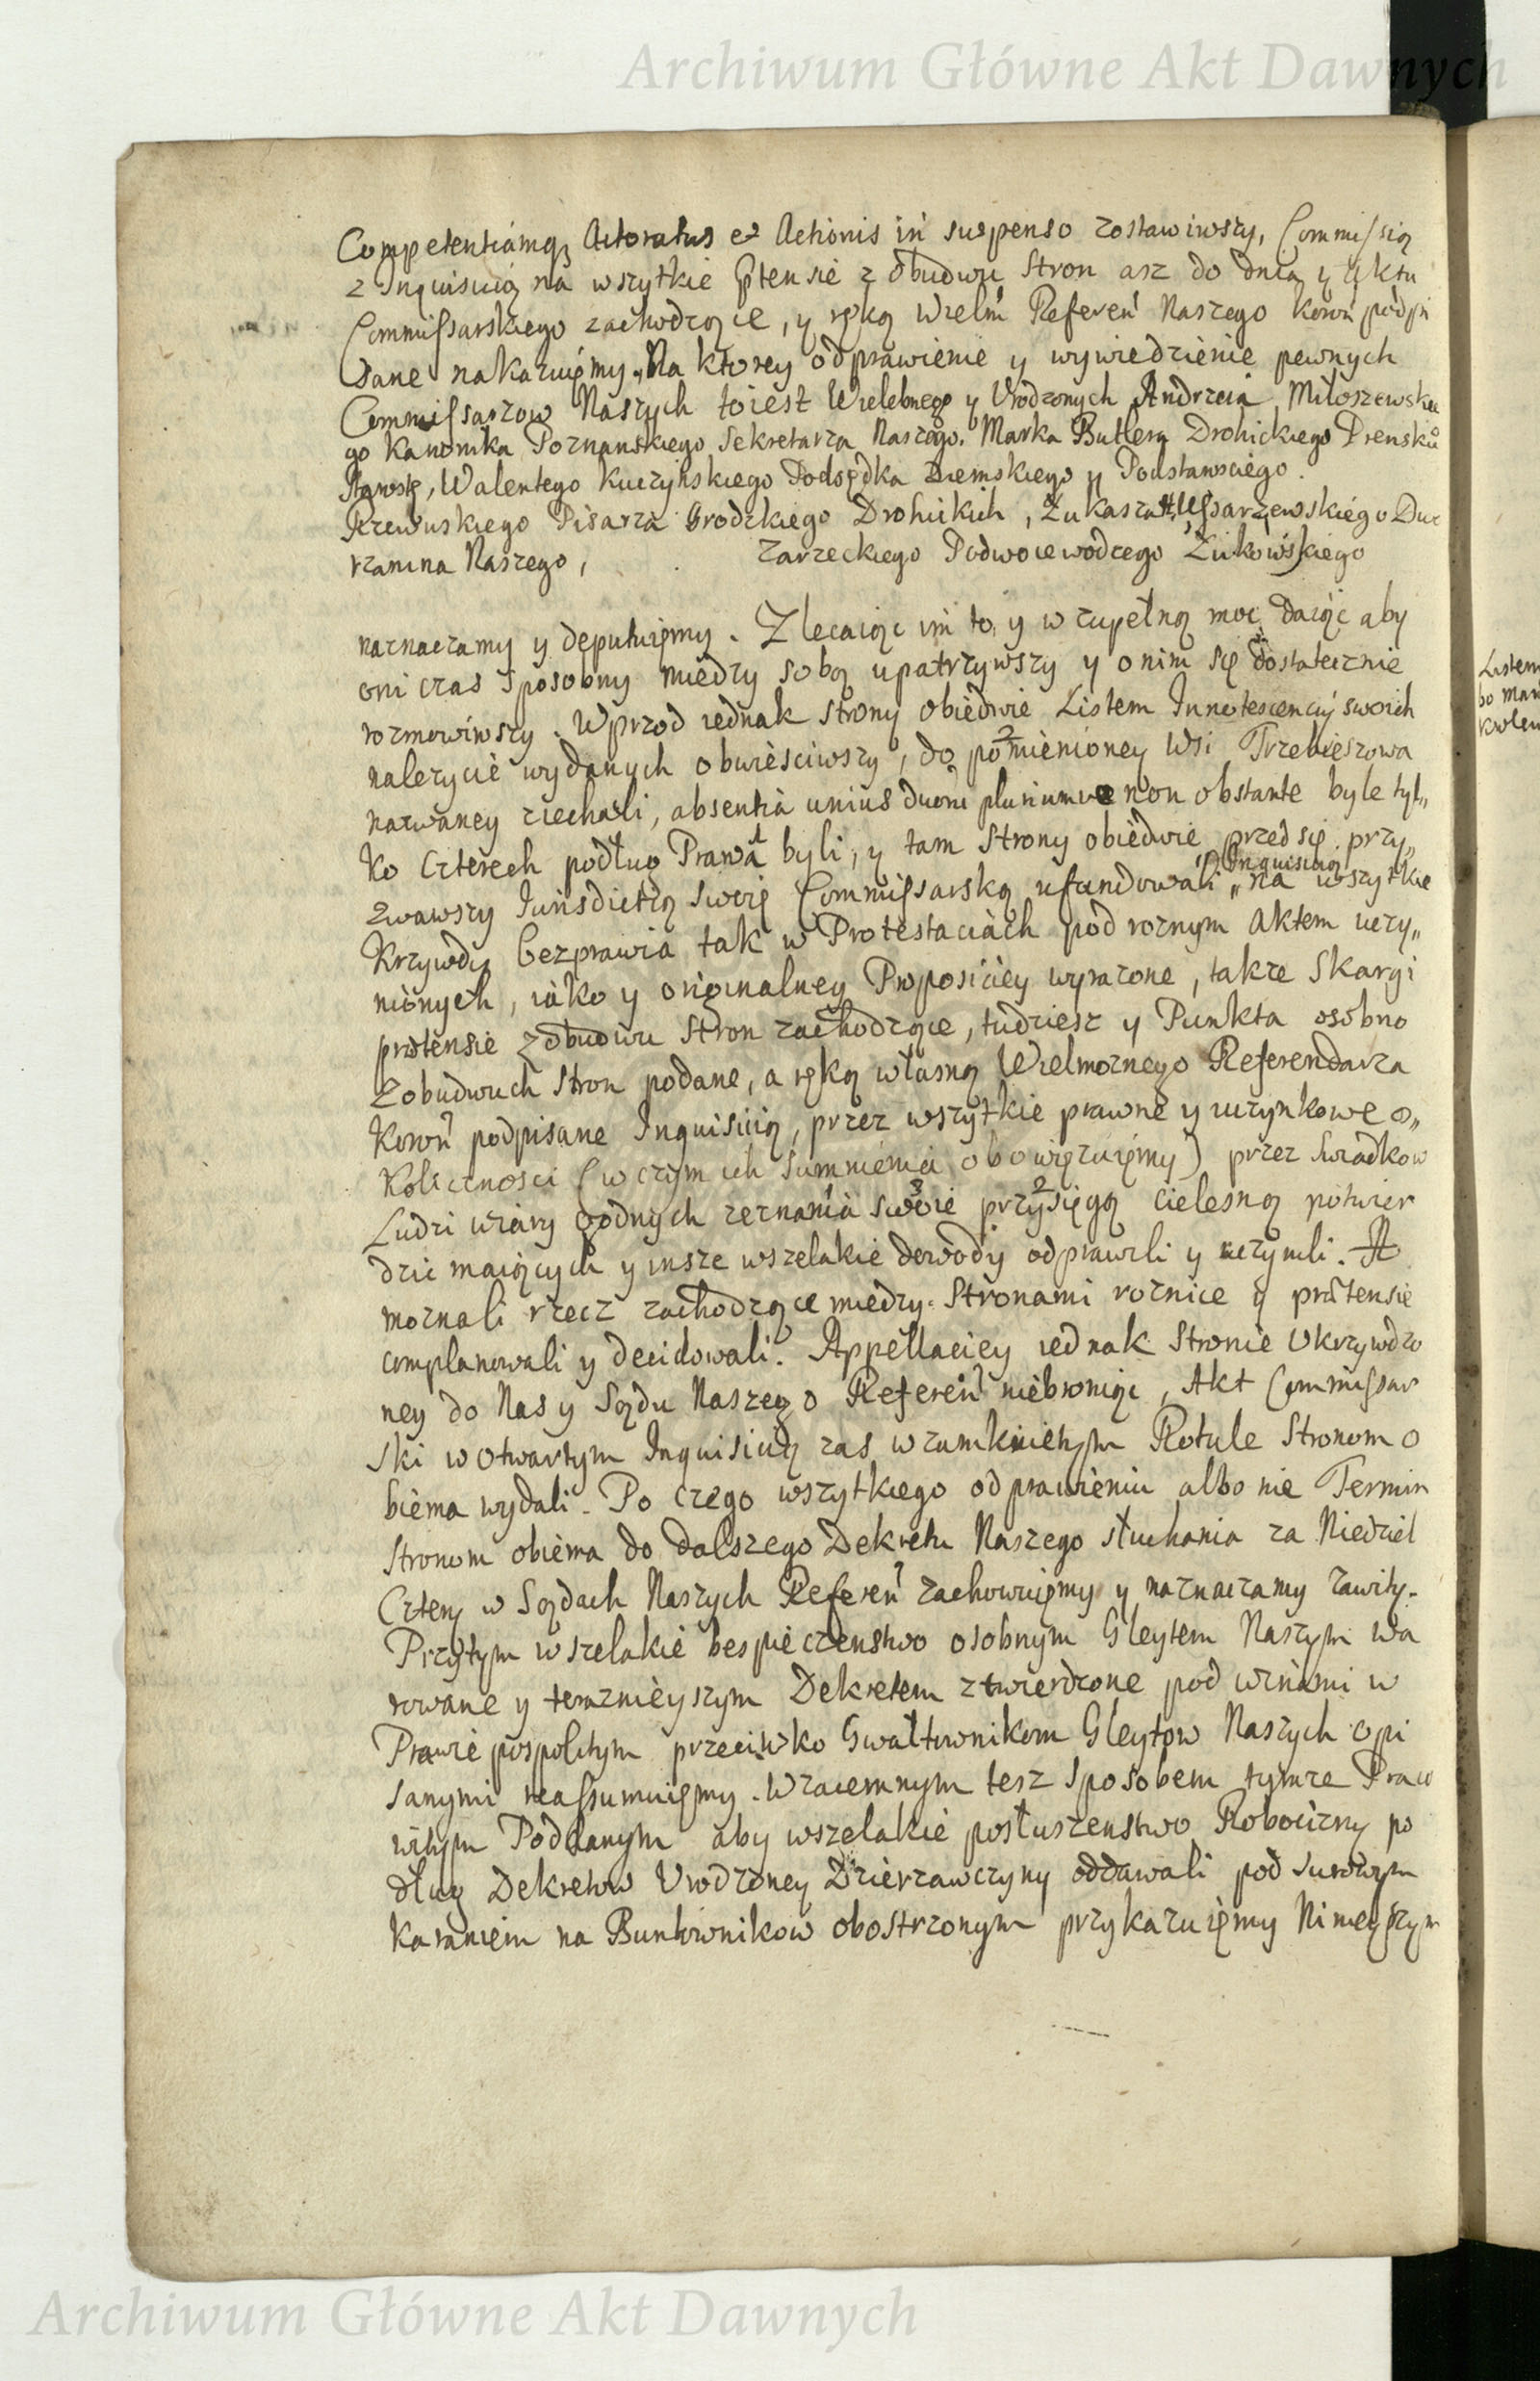 Archiwum Główne Akt Dawnych
Competentiamq; Actoratus et Actionis in suspenso zostawiwszy, Commissią
z Inquisicią na wszytkie Ptensie z obudwu Stron asz do dnia y Aktu
Commissarskiego zachodzące, y ręką Wielm Referen Naszego Koron podpi
sane nakazuięmy. Na ktorey odprawienie y wywiedzienie pewnych
Commissarzow Naszych toiest Wielebnego y Urodzonych Andrzeia Miłoszewskie
go Kanonika Poznanskiego Sekretarza Naszego, Marka Butlera Drohickiego Prensk
Starostę, Walentego Kuczynskiego Podsędka Ziemskiego y Podstarosciego
Rzewuskiego Pisarza Grodzkiego Drohickich, Łukasza Hussarzewskiego Dwo
rzanina Naszego, Zarzeckiego Podwoiewodzego Żukowskiego
naznaczamy y deputuięmy. Zlecaiąc im to, y w zupełną moc daiąc aby
oni czas sposobny miedzy sobą upatrzywszy y o nim się dostatecznie
rozmowiwszy. Wprzod iednak strony obiedwie Listem Innotescencyi swoich
nalezycie wydanych obwiesciwszy, do pomienioney Wsi Trzebieszowa
nazwaney ziechali, absentia unius duoru pluriumve non obstante byle tyl„
ko czterech podług Prawa byli, y tam Strony obiedwie przed się przy„
zwawszy Iurisdictią swoię Commissarską ufundowali „ na wszytkie
Inquisicią
Krzywdy bezprawia tak w Protestaciach pod roznym aktem uczy„
nionych, iako y originalney Proposiciey wyrazone, takze Skargi
prætensie z obudwu Stron zachodzące, tudziesz y Punkta osobno
z obudwuch Stron podane, a ręką własną Wielmoznego Referendarza
Koron podpisane Inquisicią, przez wszytkie prawne y uczynkowe o„
kolicznosci (w czym ich Sumnienia obowięzuięmy) przez Swiadkow
Ludzi wiary godnych zeznania swoie przysięgą cielesną potwier
dzic maiących y insze wszelakie dowody odprawili y uczynili. A
moznali rzecz zachodzące miedzy Stronami roznice y prætensie
complanowali y decidowali. Appellaciey iednak Stronie Ukrzywdzo
ney do Nas y Sądu Naszego Referen niebroniąc, Akt Commissar
ski w otwartym Inquisicią zas w zamknietym Rotule Stronom o
biema wydali. Po czego wszytkiego odprawieniu albo nie Termin
Stronom obiema do dalszego Dekretu Naszego słuchania za Niedziel
Cztery w Sądach Naszych Referen zachowuięmy y naznaczamy zawity.
Przytym wszelakie bespieczenstwo osobnym Gleytem Naszym wa
rowane y teraznieyszym Dekretem ztwierdzone pod winami w
Prawie pospolitym przeciwko Gwałtownikom Gleytow Naszych opi
sanymi reassumuięmy. Wzaiemnym tesz sposobem tymze Prawo
witym Poddanym aby wszelakie posłuszenstwo Robocizny po
dług Dekretow Urodzoney Dzierzawczyny oddawali pod surowym
karaniem na Buntownikow obostrzonym przykazuięmy Ninieyszym
Listem
bo man
Archiwum Główne Akt Dawnych